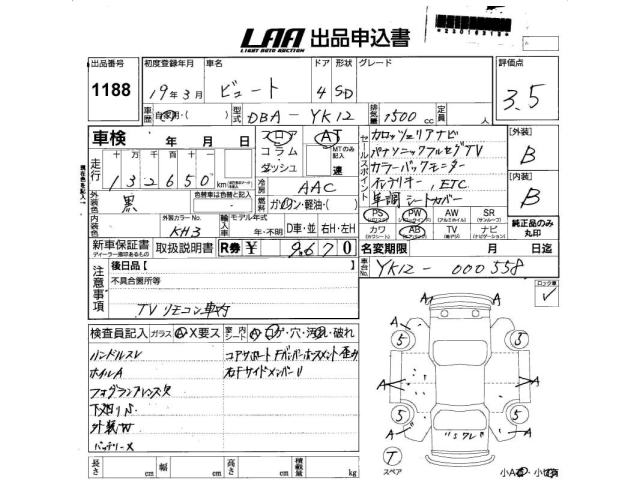 LAA 出品申込書
LIGHT AUTO AUCTION
出品番号 初度登録年月 車名 ドア 形状 グレード 評価点
1188 19年3月 ビュート 4 SD 3.5
車歴 自家用・( ) 型式 DBA-YK12 排気量 1500cc 定員 人
車検 年 月 日
フロア コラム ダッシュ
AT
MTのみ記入 速
セールスポイント
カロッツェリアナビ
パナソニックフルセグTV
カラーバックモニター
インテリキー,ETC
革調シートカバー
[外装] B
[内装] B
走行 十万千百十
132650km
冷房 AAC
燃料 ガソリン・軽油・( )
外装色 黒
色替車は色替と記入
外装カラーNo. KH3
輸入車 モデル年式 年・不明 D車・並 右H・左H
PS PW AW SR
カワ AB TV ナビ
純正品のみ丸印
新車保証書 取扱説明書 R券 ¥ 9670
名変期限 月 日迄
車台No. YK12-000558
注意事項
後日品[ ]
不具合箇所等
TVリモコン車内
ロック車
検査員記入 ガラス A X要ス 室内 シート
ハンドルスレ
ホイルA
フォグランプレンズ欠
下廻りS
外装W
バッテリーX
コアサポートFバンパーホースメント歪み
右FサイドメンバーU
A A
5 3
A A
5 5
A A
"Sワレ"
T
スペア
長さ cm 幅 cm 高さ cm 積載量 kg